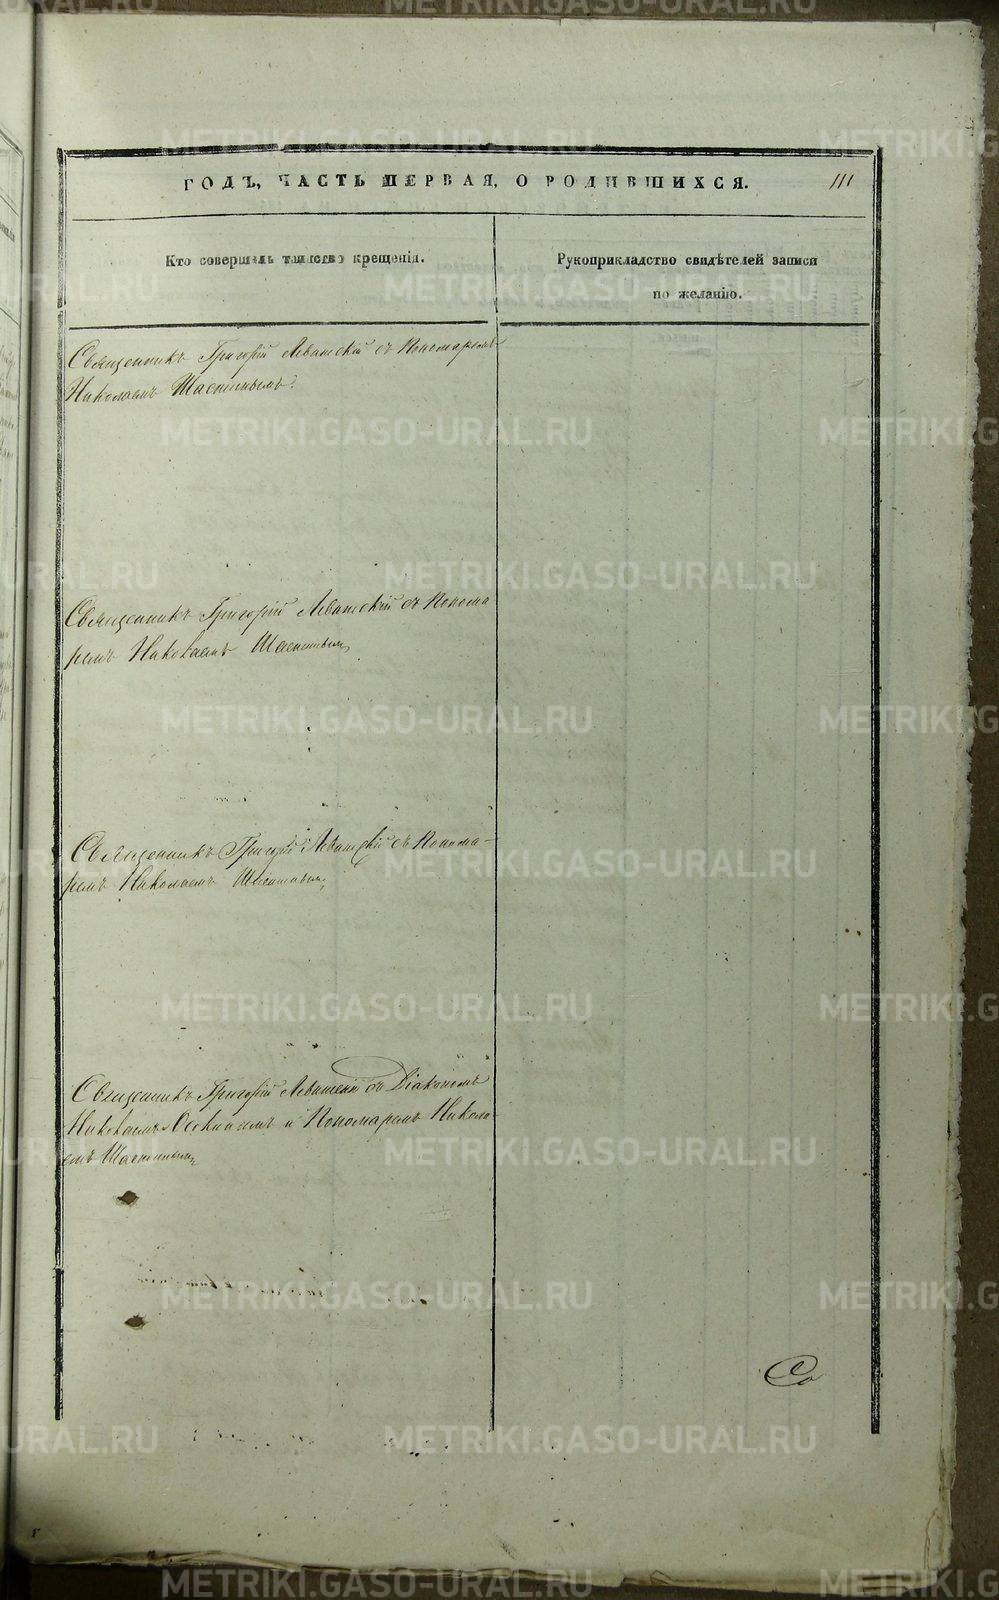 ГОДЪ, ЧАСТЬ ПЕРВАЯ, О РОДИВШИХСЯ. 111
Кто совершалъ таинство крещенія.
Рукоприкладство свидѣтелей записи
по желанію.
Священникъ Григорій Левитскій съ Пономаремъ
Николаемъ Шастинымъ.
Священникъ Григорій Левитскій съ Понома
ремъ Николаемъ Шастинымъ
Священникъ Григорій Левитскій съ Понома-
ремъ Николаемъ Шастинымъ
Священникъ Григорій Левитскій съ Діакономъ
Николаемъ и Пономаремъ Никола
емъ Шастинымъ
METRIKI.GASO-URAL.RU